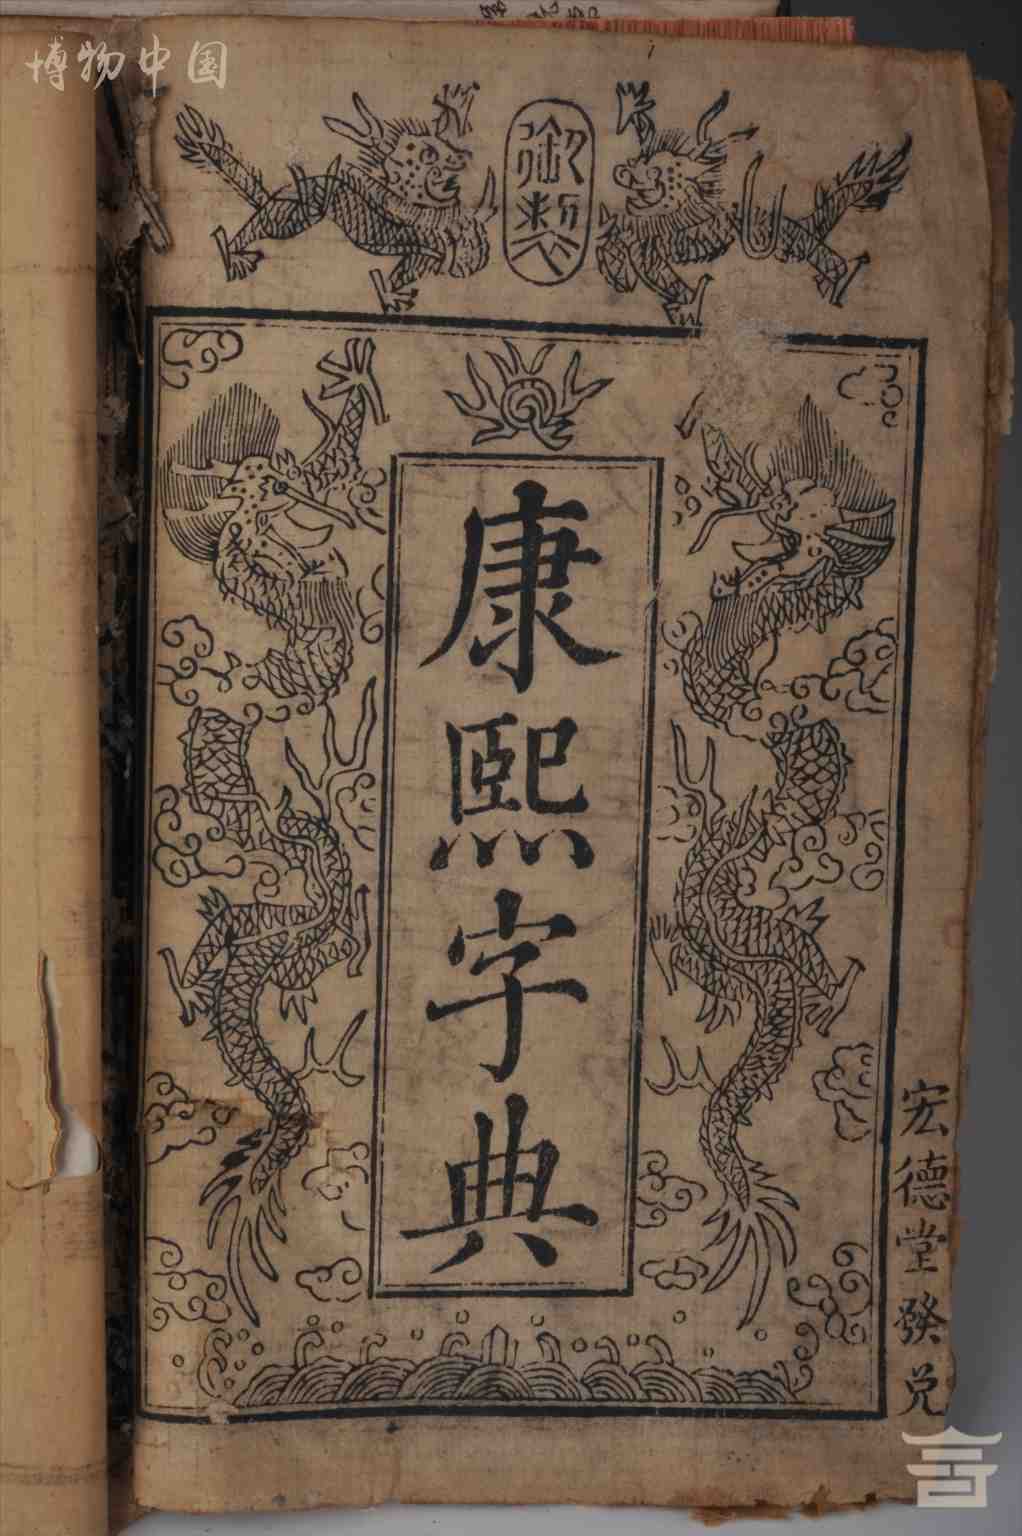 博物中国
御製
康熙字典
宏德堂發兌